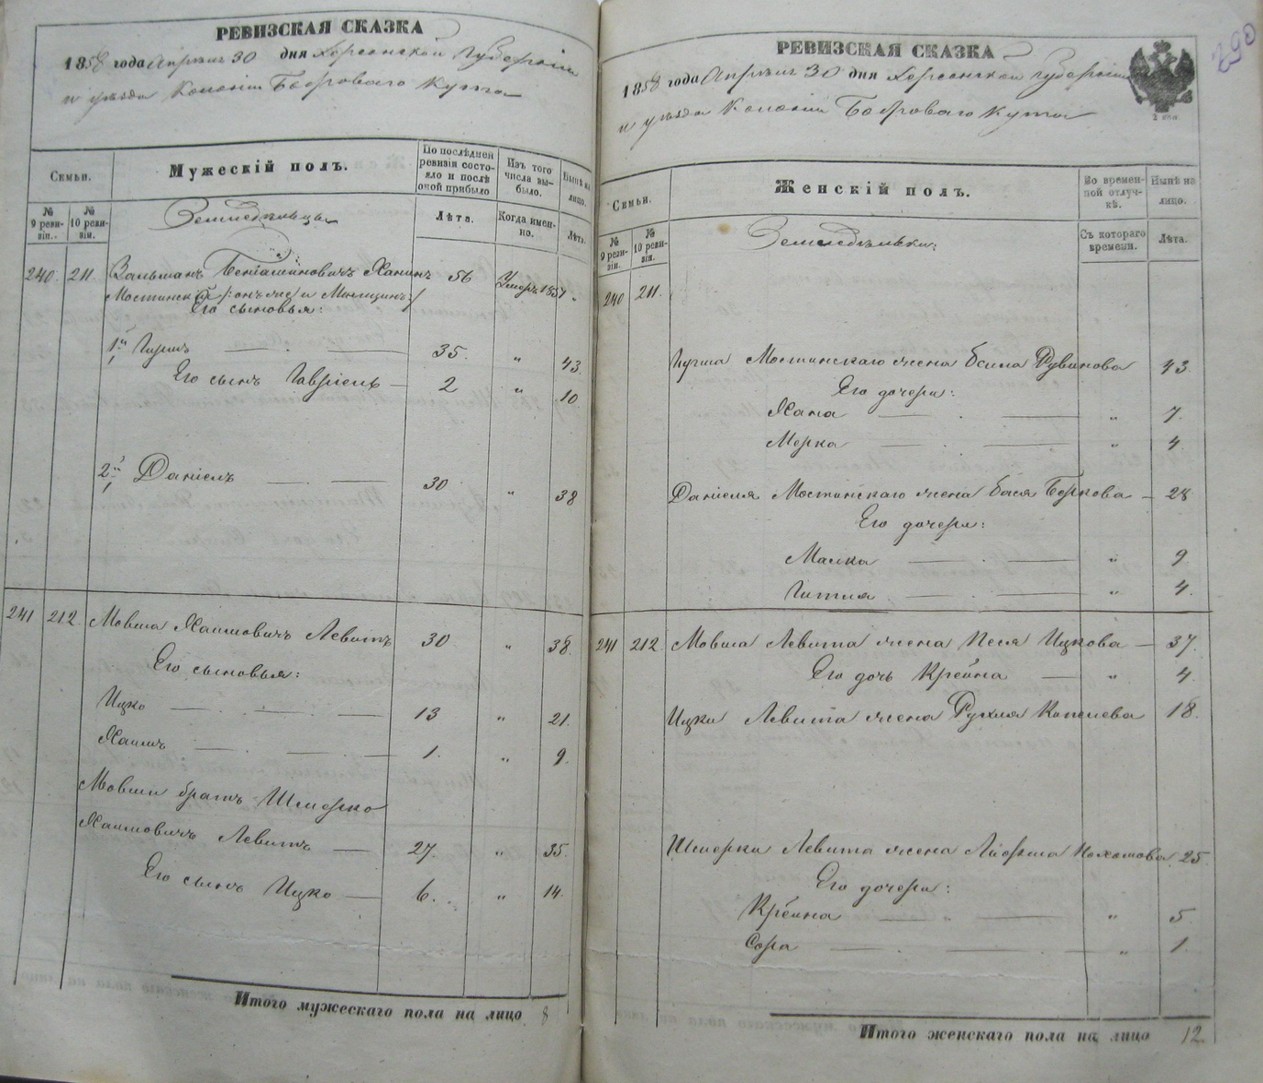 РЕВИЗСКАЯ СКАЗКА
1858 года Апрѣля 30 дня Херсонской Губерніи
и уѣзда Колоніи Боброваго Кута
Семьи.
Мужескій полъ.
По послѣдней ревизіи состояло и послѣ оной прибыло
Изъ того числа выбыло.
Нынѣ на лицо.
№ 9 ревизіи.
№ 10 ревизіи.
Лѣта.
Когда именно.
Лѣта.
Земледѣльцы
240. 211. Зальманъ Беніаминовичъ Ханинъ 56 Умеръ 1851 "
Мостинскій /: онъ же и
Его сыновья:
1й Гиршъ 35. " 43.
Его сынъ Гавріель 2 " 10
2й Даніель 30 " 38
241 212. Мовша Хаимовичъ Левитъ 30 " 38.
Его сыновья:
Ицко 13 " 21.
Хаимъ 1. " 9.
Мовши братъ Шмерко
Хаимовичъ Левитъ 27. " 35.
Его сынъ Ицко 6. " 14.
Итого мужескаго пола на лицо 8
290
РЕВИЗСКАЯ СКАЗКА
1858 года Апрѣля 30 дня Херсонской Губерніи
и уѣзда Колоніи Боброваго Кута
Семьи.
Женскій полъ.
Во временной отлучкѣ.
Нынѣ на лицо.
№ 9 ревизіи.
№ 10 ревизіи.
Съ котораго времени.
Лѣта.
Земледѣлки:
240 211.
Гирша Мостинскаго жена Бейла Рувинова 43.
Его дочери:
Хана " 7.
Мерка " 4
Даніеля Мостинскаго жена Бася Беркова 28
Его дочери:
Малка " 9
Гитля " 4.
241 212 Мовша Левита жена Песя Ицкова 37.
Его дочь Крейна " 4.
Ицки Левита жена Рухля 18.
Шмерки Левита жена 25.
Его дочери:
Крейна " " 5.
Сора " 1.
Итого женскаго пола на лицо 12.